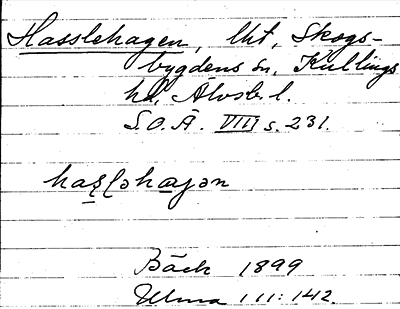 Hasslehagen, lht, Skogs-
bygdens sn, Kullings
hd, Älvsb. l.
S.O.Ä. VIII s. 231.
hasləhaɡən
Bäck 1899
Ulma 111:142.